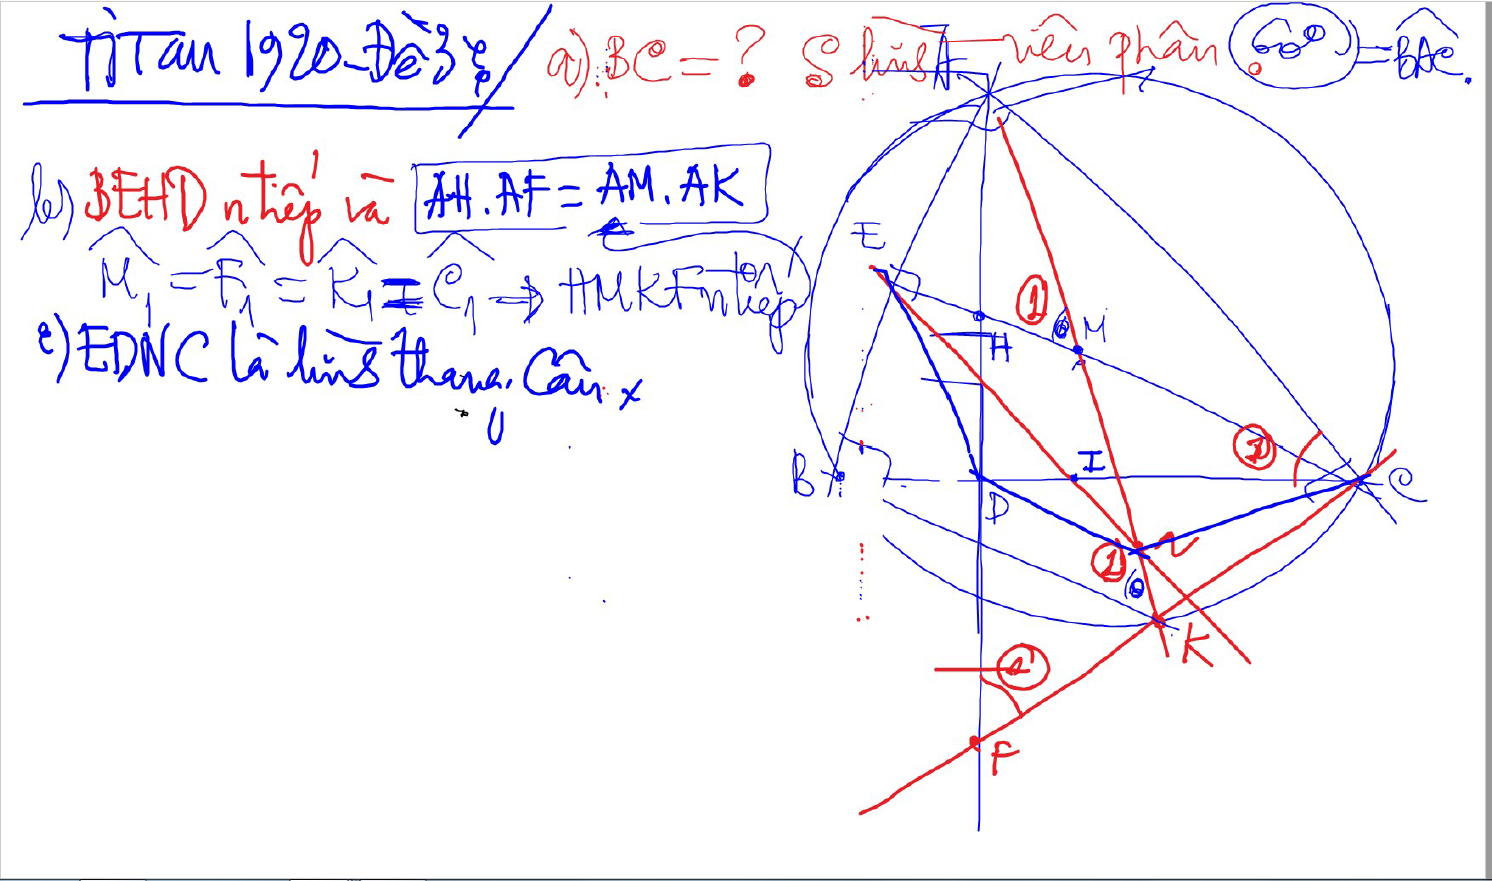 TÂN 1920-Đề 3
a) BC = ? S hình viên phân 60° = BAC.
b) BEHD n tiếp và AH.AF = AM.AK
M₁ = F₁ = K₁ = C₁ ⇒ HMKF n tiếp
c) EDNC là hình thang cân
A
E
1
M
H
1
B
I
C
D
1
N
K
1
F